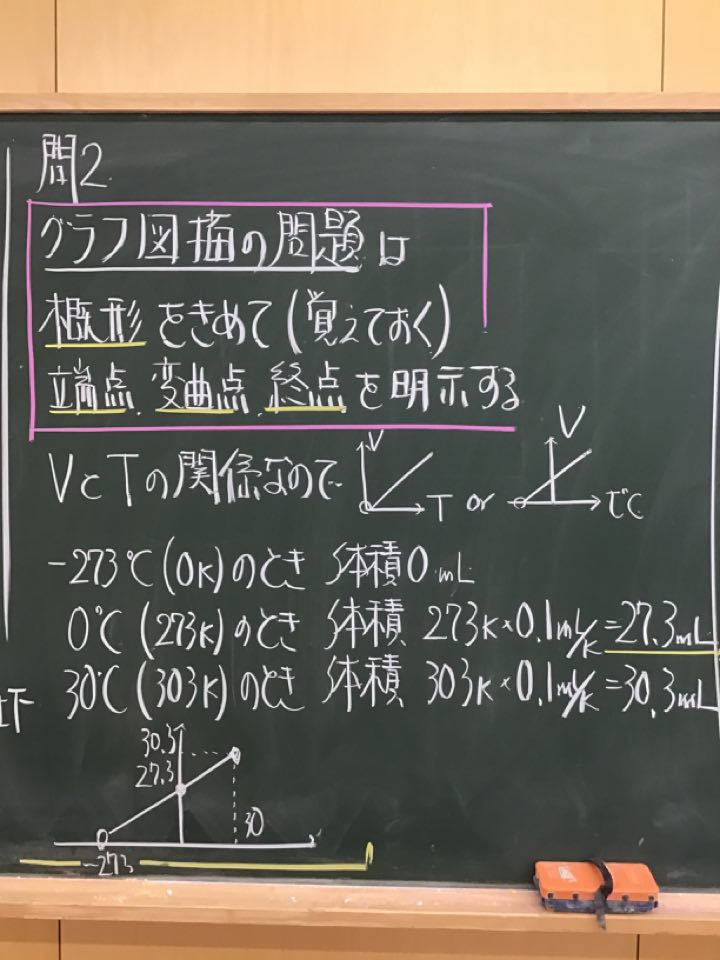 問2
グラフ図描の問題は
概形をきめて(覚えておく)
端点、変曲点、終点を明示する
VとTの関係なので V T or V t℃
-273℃(0K)のとき 体積0mL
0℃(273K)のとき 体積 273K×0.1mL/K=27.3mL
30℃(303K)のとき 体積 303K×0.1mL/K=30.3mL
30.3
27.3
30
-273